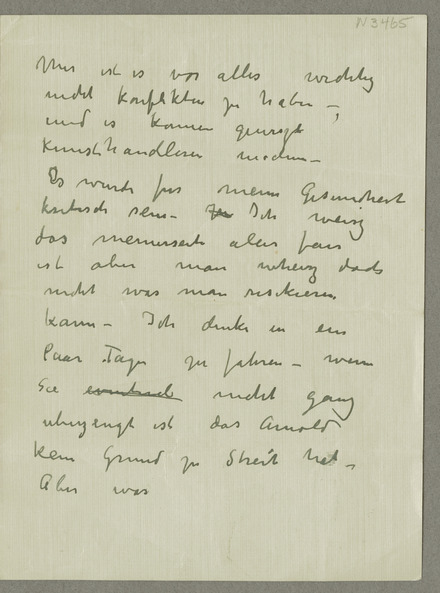 N3465
Mir ist is vor alles wichtig
nicht Konflikten zu haben –,
und is konnen
Kunsthandleren machen –
Es wurde fur meine Gesundheit
kritisch sein – Ich weisz
das meinerseits alles fair
ist aber man weisz dads
nicht was man riskieren
kann – Ich denke in ein
Paar Tage zu fahren – wenn
Sie nicht ganz
uberzeugt ist das Arnold
kein Grund zu Streit hat –
Aber was